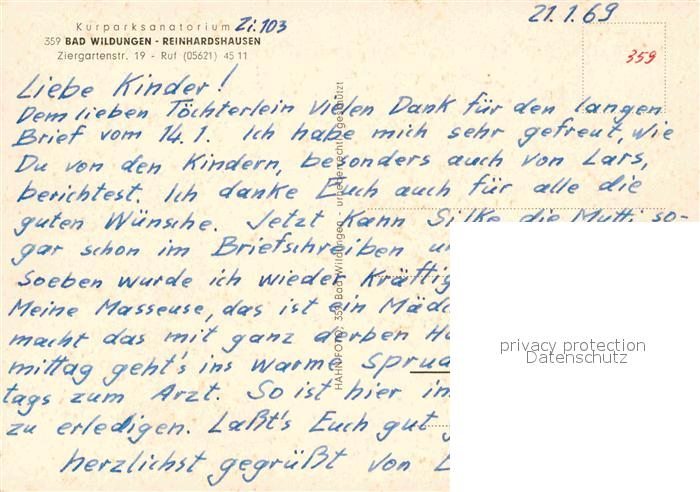 Kurparksanatorium Zi. 103
21.1.69
359 BAD WILDUNGEN - REINHARDSHAUSEN
Ziergartenstr. 19 - Ruf (05621) 45 11
359
Liebe Kinder!
Dem lieben Töchterlein vielen Dank für den langen
Brief vom 14.1. Ich habe mich sehr gefreut, wie
Du von den Kindern, besonders auch von Lars,
berichtest. Ich danke Euch auch für alle die
guten Wünsche. Jetzt kann Silke die Mutti so-
gar schon im Briefschreiben
Soeben wurde ich wieder kräftig
Meine Masseuse, das ist ein
macht das mit ganz derben
mittag geht's ins warme
tags zum Arzt. So ist hier
zu erledigen. Laßt's Euch gut
herzlichst gegrüßt von
HAHNFOTO, 359 Bad Wildungen - urheberrechtl. geschützt
privacy protection
Datenschutz